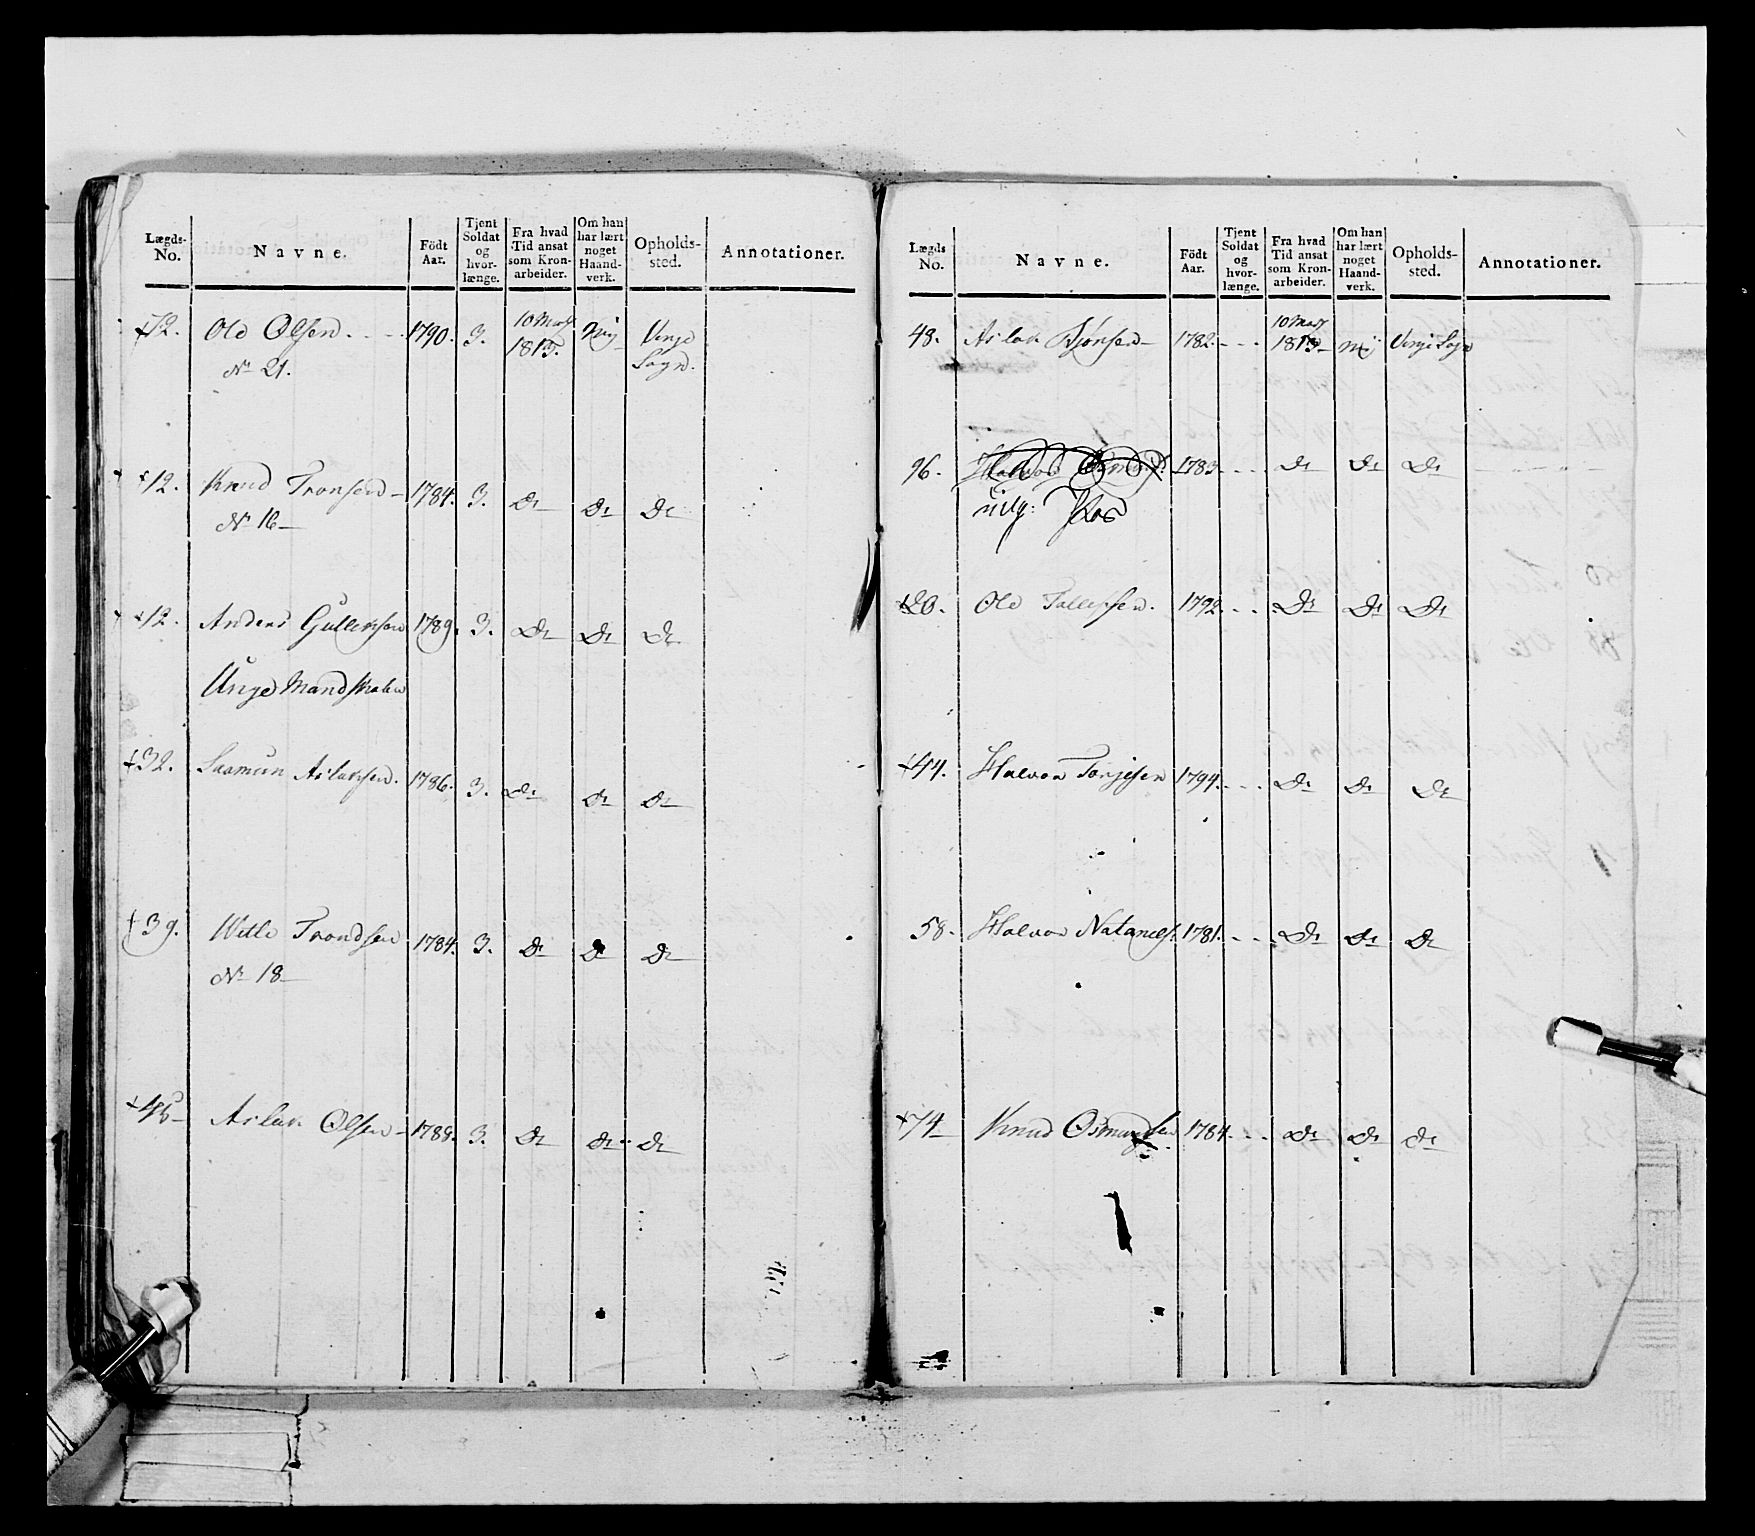 Lægds-No. Navne. Födt Aar. Tjent Soldat og hvor-længe. Fra hvad Tid ansat som Kron-arbeider. Om han har lært noget Haand-verk. Opholds-sted. Annotationer.
+72. Ole Olsen. - - 1790. 3. 10 May 1813. Nei Vinje Sogn.
No 21.
+12. Knud Tronsen - 1784. 3. Do Do Do
No 16 -
+12. Anders Gullichsen 1789. 3. Do Do Do
Unge Mandskaber
+32. Saamun Aslaksen. 1786. 3. Do Do Do
+39. Wetle Trondsen 1784. 3. Do Do Do
No 18 -
Aslak Olsen - 3. Do Do Do
Lægds No. Navne. Födt Aar. Tjent Soldat og hvor-længe. Fra hvad Tid ansat som Kron-arbeider. Om han har lært noget Haand-verk. Opholds-sted. Annotationer.
48. Aslak Bjønsen - 1782. - - 10 May 1813 - nei Vinje Sogn
96. Halvor 1783. - - Do Do Do
+20. Ole Tallefsen. 1792. - - Do Do Do
+44. Halvor Torjesen 1794. - - Do Do Do
58. Halvor Natanaels. 1781. - - Do Do Do
+74 Knud Osmundsen 1784. - - Do Do Do